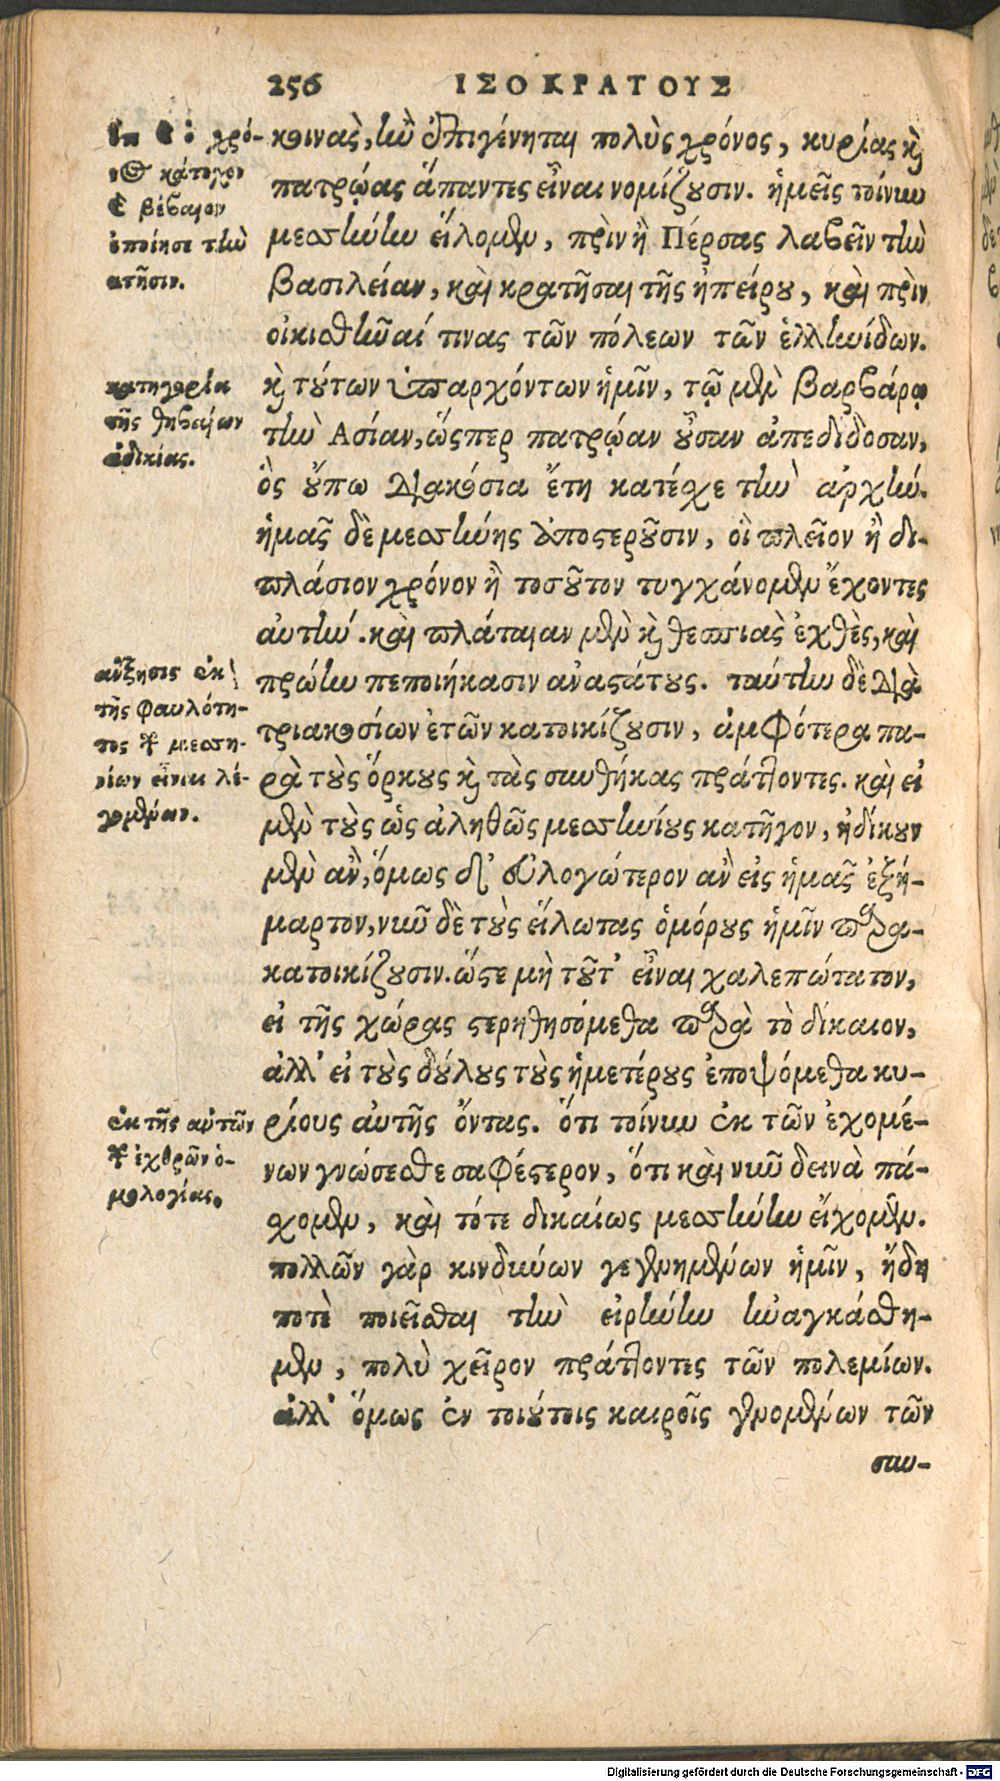 256 ΙΣΟΚΡΑΤΟΥΣ
κοινὰς, ἢν ἐπιγένηται πολὺς χρόνος, κυρίας καὶ
πατρῴας ἅπαντες εἶναι νομίζουσιν. ἡμεῖς τοίνυν
μεσσήνην εἵλομεν, πρὶν ἢ Πέρσας λαβεῖν τὴν
βασιλείαν, καὶ κρατῆσαι τῆς ἠπείρου, καὶ πρὶν
οἰκισθῆναί τινας τῶν πόλεων τῶν ἑλληνίδων.
καὶ τούτων ὑπαρχόντων ἡμῖν, τῷ μὲν βαρβάρῳ
τὴν Ἀσίαν, ὥσπερ πατρῴαν οὖσαν ἀπεδίδοσαν,
ὃς οὔπω διακόσια ἔτη κατέχει τὴν ἀρχήν.
ἡμᾶς δὲ μεσσήνης ἀποστεροῦσιν, οἳ πλεῖον ἢ δι-
πλάσιον χρόνον ἢ τοσοῦτον τυγχάνομεν ἔχοντες
αὐτήν. καὶ πλάταιαν μὲν καὶ θεσπιὰς ἐχθὲς, καὶ
πρώην πεποιήκασιν ἀναστάτους. ταύτην δὲ διὰ
τριακοσίων ἐτῶν κατοικίζουσιν, ἀμφότερα πα-
ρὰ τοὺς ὅρκους καὶ τὰς συνθήκας πράττοντες. καὶ εἰ
μὲν τοὺς ὡς ἀληθῶς μεσσηνίους κατῆγον, ἠδίκουν
μὲν ἂν, ὅμως δ᾽ εὐλογώτερον ἂν εἰς ἡμᾶς ἐξή-
μαρτον, νῦν δὲ τοὺς εἵλωτας ὁμόρους ἡμῖν παρα-
κατοικίζουσιν. ὥστε μὴ τοῦτ᾽ εἶναι χαλεπώτατον,
εἰ τῆς χώρας στερηθησόμεθα παρὰ τὸ δίκαιον,
ἀλλ᾽ εἰ τοὺς δούλους τοὺς ἡμετέρους ἐποψόμεθα κυ-
ρίους αὐτῆς ὄντας. ὅτι τοίνυν ἐκ τῶν ἐχομέ-
νων γνώσεσθε σαφέστερον, ὅτι καὶ νῦν δεινὰ πά-
χομεν, καὶ τότε δικαίως μεσσήνην εἴχομεν.
πολλῶν γὰρ κινδύνων γεγενημένων ἡμῖν, ἤδη
ποτὲ ποιεῖσθαι τὴν εἰρήνην ἠναγκάσθη-
μεν, πολὺ χεῖρον πράττοντες τῶν πολεμίων.
ἀλλ᾽ ὅμως ἐν τοιούτοις καιροῖς γενομένων τῶν
συν-
χρό-
νου κάτοχον
καὶ βέβαιον
ἐποίησε τὴν
κτῆσιν.
κατηγορία
τῆς θηβαίων
ἀδικίας.
αὔξησις ἐκ
τῆς φαυλότη-
τος τῶν μεσση-
νίων εἶναι λε-
γομένων.
ἐκ τῆς αὐτῶν
τῶν ἐχθρῶν ὁ-
μολογίας.
Digitalisierung gefördert durch die Deutsche Forschungsgemeinschaft - DFG